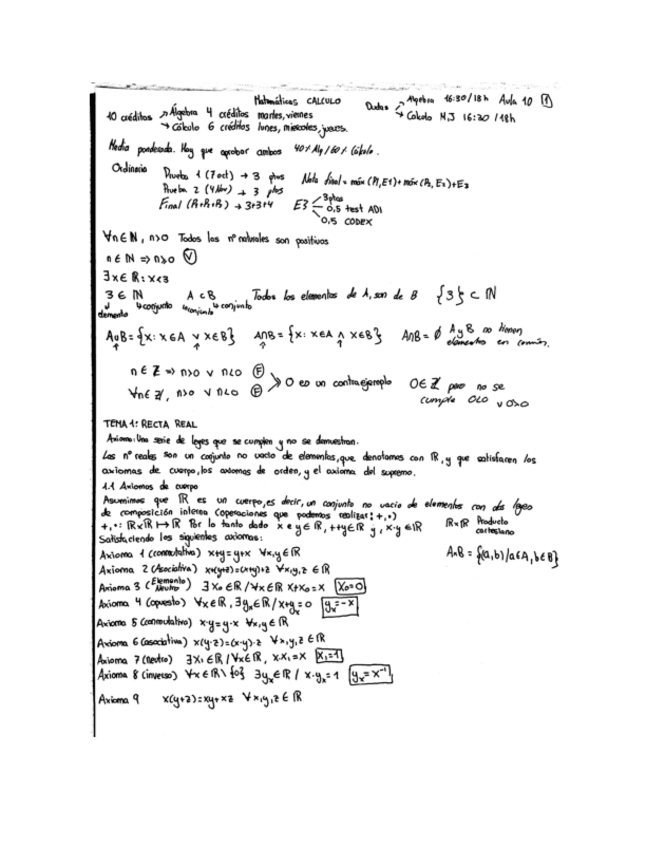 Matemáticas CALCULO
Dudas → Algebra 16:30/18h Aula 10 ①
→ Calculo M,J 16:30/18h
10 créditos → Álgebra 4 créditos martes, viernes
→ Cálculo 6 créditos lunes, miercoles, jueves.
Media ponderada. Hay que aprobar ambos 40% Alg/60% Cálculo.
Ordinaria Prueba 1 (7 oct) → 3 ptos Nota final = máx (P₁,E1) + máx (P₂,E₂) + E3
Prueba 2 (4 Nov) → 3 ptos
Final (P₁+P₂+P₃) → 3+3+4 E3 3 ptos
0,5 test ADI
0,5 CODEX
∀n∈ℕ, n>0 Todos los nº naturales son positivos
n∈ℕ ⇒ n>0 Ⓥ
∃x∈ℝ: x<3
3 ∈ ℕ A ⊂ B Todos los elementos de A, son de B {3} ⊂ ℕ
elemento conjunto conjunto conjunto
A∪B = {x: x∈A ∨ x∈B} A∩B = {x: x∈A ∧ x∈B} A∩B = ∅ A y B no tienen elementos en común.
n∈ℤ ⇒ n>0 ∨ n<0 Ⓕ
∀n∈ℤ, n>0 ∨ n<0 Ⓕ
0 es un contraejemplo 0∈ℤ pero no se cumple 0<0 ∨ 0>0
TEMA 1: RECTA REAL
Axioma: Una serie de leyes que se cumplen y no se demuestran.
Los nº reales son un conjunto no vacio de elementos, que denotamos con ℝ, y que satisfacen los
axiomas de cuerpo, los axiomas de orden, y el axioma del supremo.
1.1 Axiomas de cuerpo
Asumimos que ℝ es un cuerpo, es decir, un conjunto no vacio de elementos con dos leyes
de composición interna (operaciones que podemos realizar: +, •)
+, •: ℝxℝ ↦ ℝ Por lo tanto dado x e y ∈ ℝ, x+y ∈ ℝ y, x·y ∈ ℝ ℝxℝ Producto cartesiano
Satisfaciendo los siguientes axiomas:
AxB = {(a,b)/a∈A, b∈B}
Axioma 1 (conmutativa) x+y=y+x ∀x,y∈ℝ
Axioma 2 (Asociativa) x+(y+z)=(x+y)+z ∀x,y,z ∈ ℝ
Axioma 3 (Elemento Neutro) ∃x₀∈ℝ/∀x∈ℝ x+x₀=x x₀=0
Axioma 4 (opuesto) ∀x∈ℝ, ∃yₓ∈ℝ/x+yₓ=0 yₓ=-x
Axioma 5 (conmutativa) x·y=y·x ∀x,y∈ℝ
Axioma 6 (asociativa) x(y·z)=(x·y)·z ∀x,y,z ∈ℝ
Axioma 7 (neutro) ∃x₁∈ℝ/∀x∈ℝ, x·x₁=x x₁=1
Axioma 8 (inverso) ∀x∈ℝ\{0} ∃yₓ∈ℝ / x·yₓ=1 yₓ=x⁻¹
Axioma 9 x(y+z)=xy+xz ∀x,y,z∈ℝ